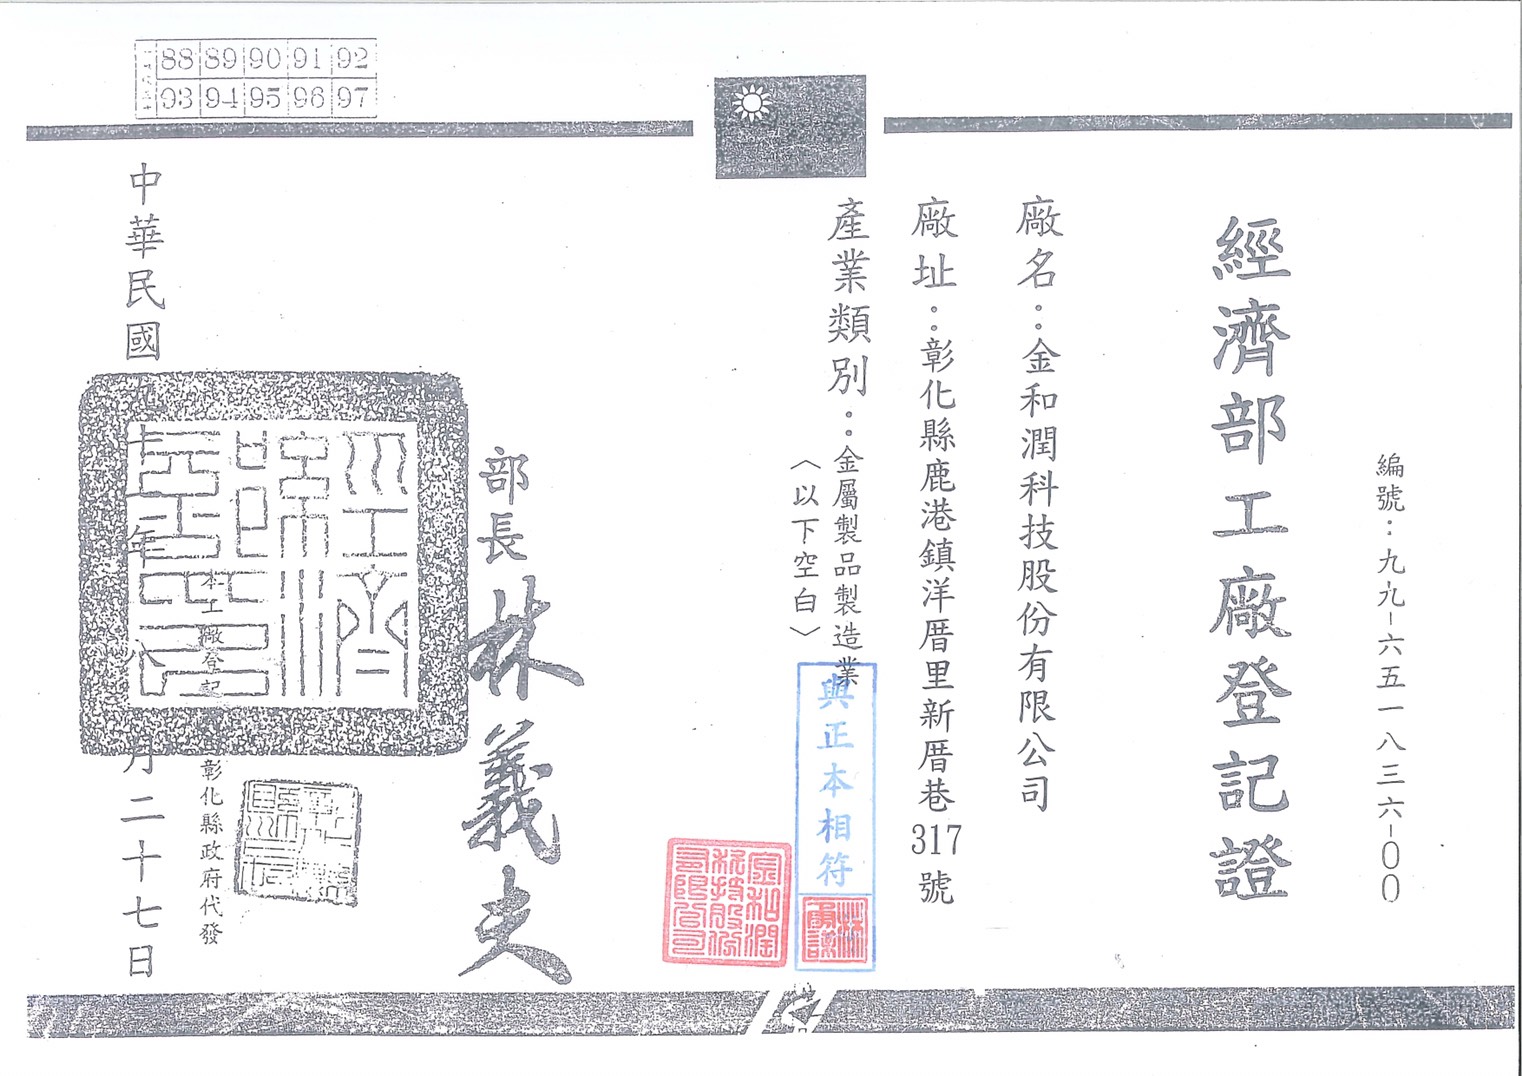 88 89 90 91 92
93 94 95 96 97
編號：九九－六五一八三六－００
經濟部工廠登記證
廠名：金和潤科技股份有限公司
廠址：彰化縣鹿港鎮洋厝里新厝巷317號
產業類別：金屬製品製造業
〈以下空白〉
與正本相符
金和潤科技股份有限公司
部長 林義夫
本工廠登記
彰化縣政府代發
中華民國
年八月二十七日